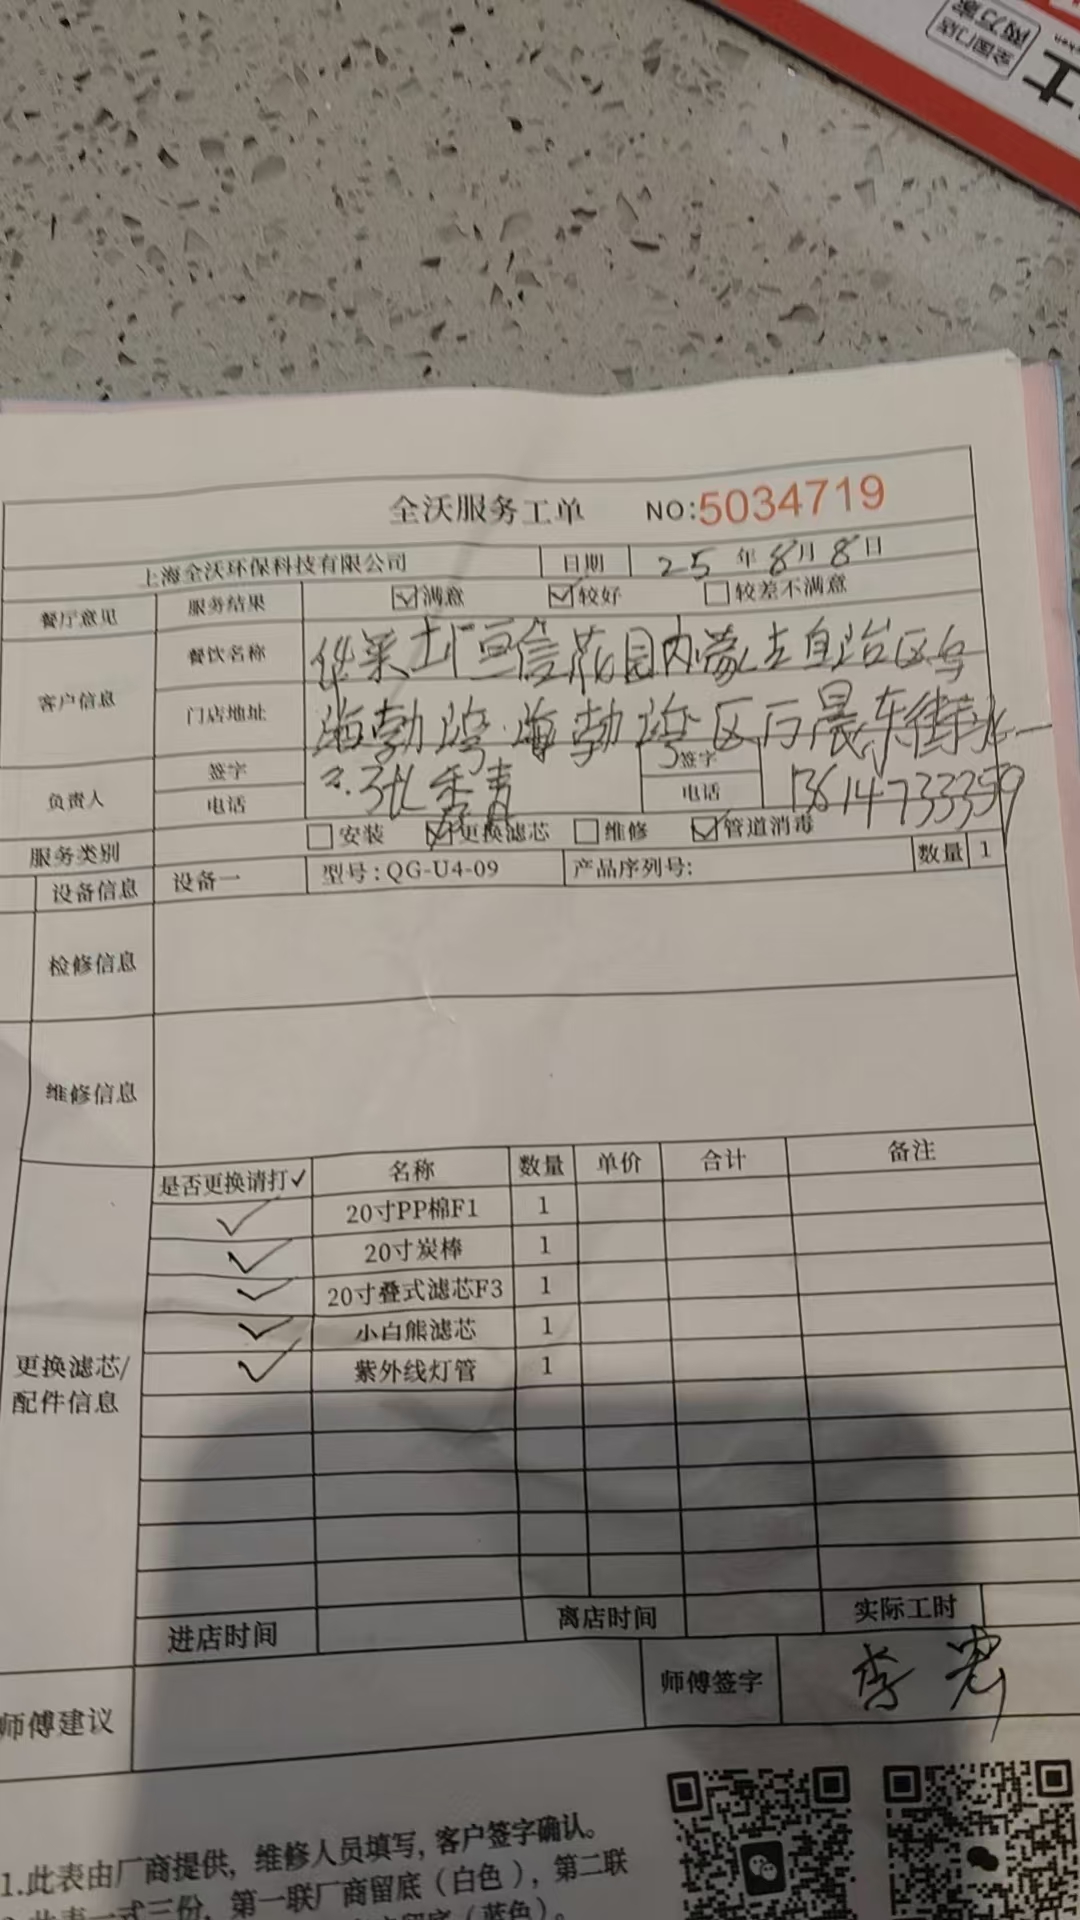 全国门店
两万家
士
全沃服务工单 NO:5034719
上海全沃环保科技有限公司 日期 25年8月8日
餐厅意见 服务结果 ☑满意 ☑较好 □较差不满意
客户信息 餐饮名称 华莱士恒信花园内蒙古自治区乌
门店地址 海勃湾·海勃湾区 晨东街
负责人 签字 张秀青 签字
电话 电话 13614733359
服务类别 □安装 ☑更换滤芯 □维修 ☑管道消毒
设备信息 设备一 型号:QG-U4-09 产品序列号: 数量 1
检修信息
维修信息
更换滤芯/
配件信息
是否更换请打✓ 名称 数量 单价 合计 备注
✓ 20寸PP棉F1 1
✓ 20寸炭棒 1
✓ 20寸叠式滤芯F3 1
✓ 小白熊滤芯 1
✓ 紫外线灯管 1
进店时间 离店时间 实际工时
师傅建议 师傅签字 李宏
1.此表由厂商提供, 维修人员填写, 客户签字确认。
此表一式三份, 第一联厂商留底（白色）, 第二联
（蓝色）。